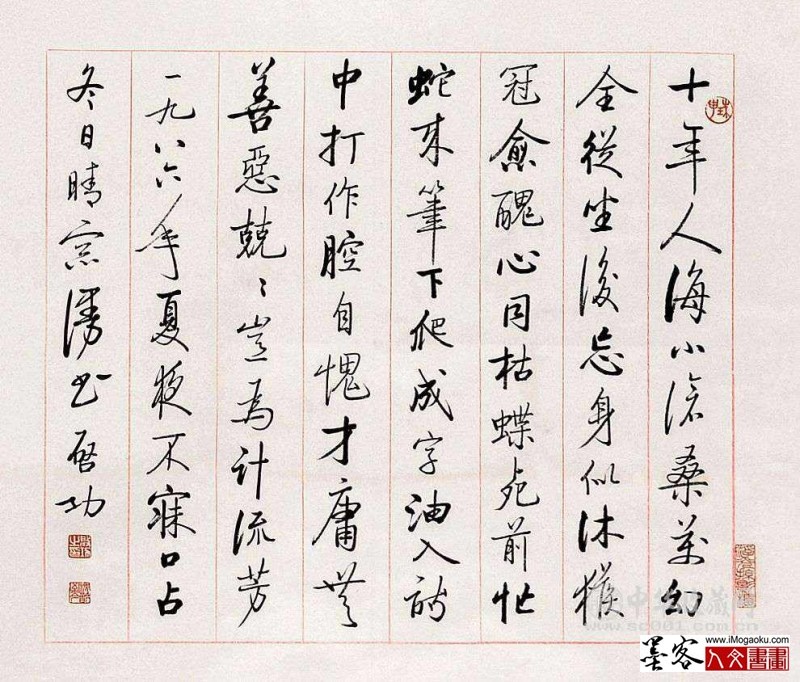 十年人海小滄桑萬幻
全從坐後忘身似沐猴
冠愈醜心同枯蝶死前忙
蛇来筆下爬成字油入詩
中打作腔自愧才庸無
善惡兢〻豈為計流芳
一九八六年夏夜不寐口占
冬日晴窗漫書啓功
中华收藏网
www.sc001.com.cn
www.iMogaoku.com
墨客人文書畫